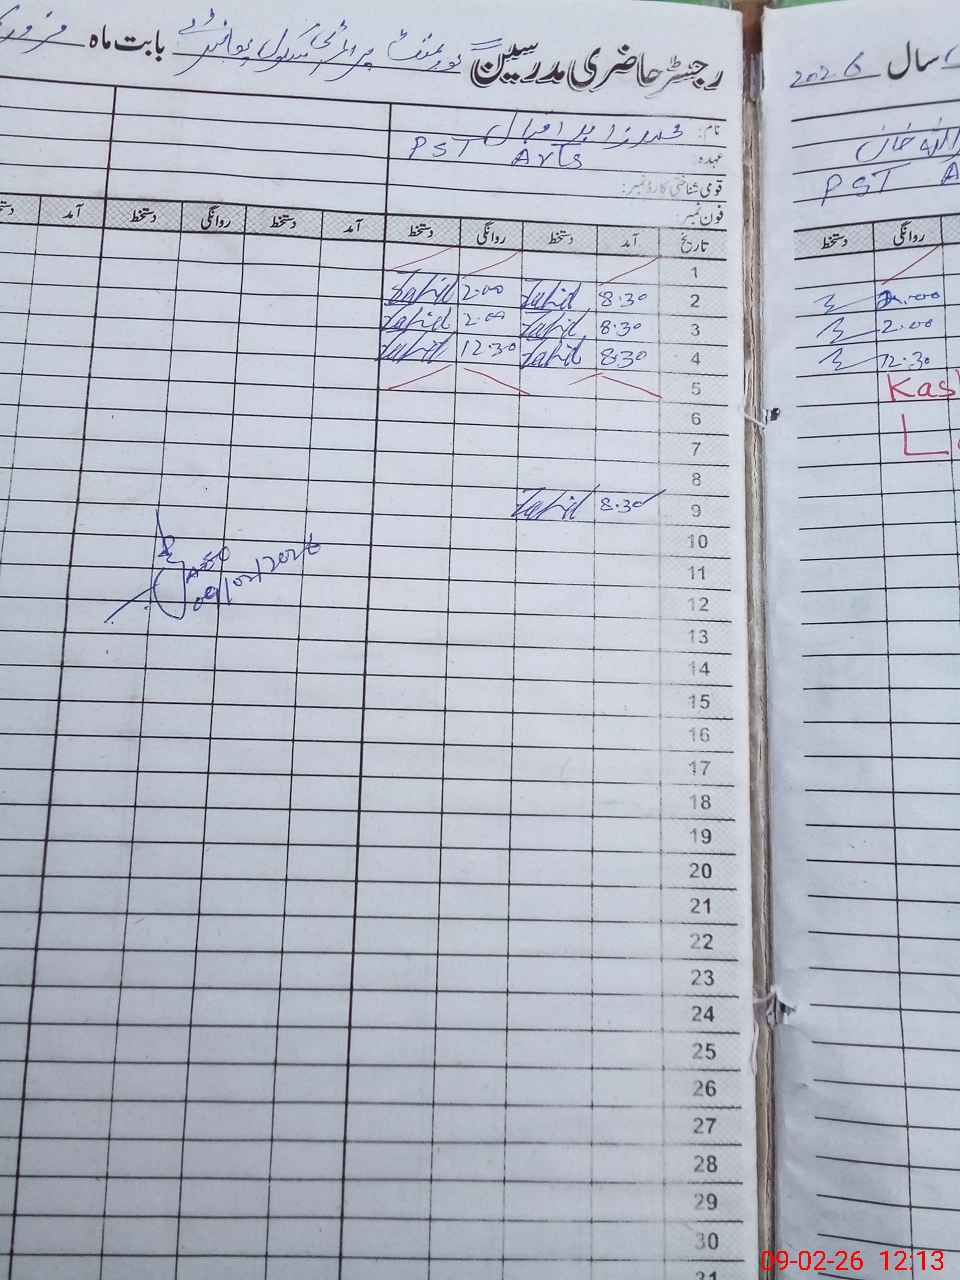 سال 2026
رجسٹر حاضری مدرسین گورنمنٹ پرائمری سکول بابت ماہ فروری
نام: محمد زاہد اقبال
عہدہ: PST Arts
قومی شناختی کارڈ نمبر:
فون نمبر:
اللہ خان
PST A
روانگی دستخط
تاریخ آمد دستخط روانگی دستخط آمد دستخط روانگی دستخط آمد
1
2 8.30 Zahid 2.00 Zahid
3 8.30 Zahid 2.00 Zahid
4 8.30 Zahid 12.30 Zahid
5
6
7
8
9 8.30 Zahid
10
11
12
13
14
15
16
17
18
19
20
21
22
23
24
25
26
27
28
29
30
31
2.00
2.00
12.30
Kash
09/02/2026
09-02-26 12:13